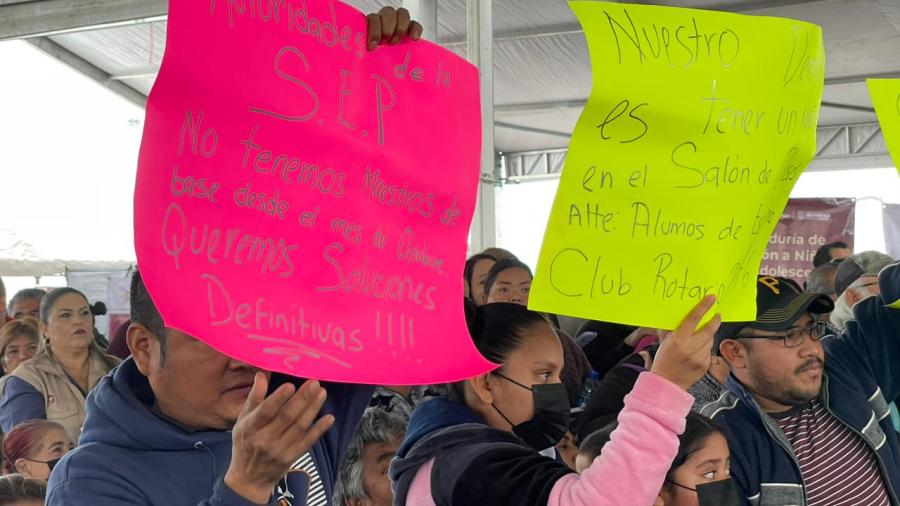 Autoridades de la
S.E.P
No tenemos Maestros de
base desde el mes de Octubre.
Queremos Soluciones
Definitivas !!!!
Nuestro
es tener un
en el Salón de
Atte: Alumos de
Club Rotario
REYNOSA